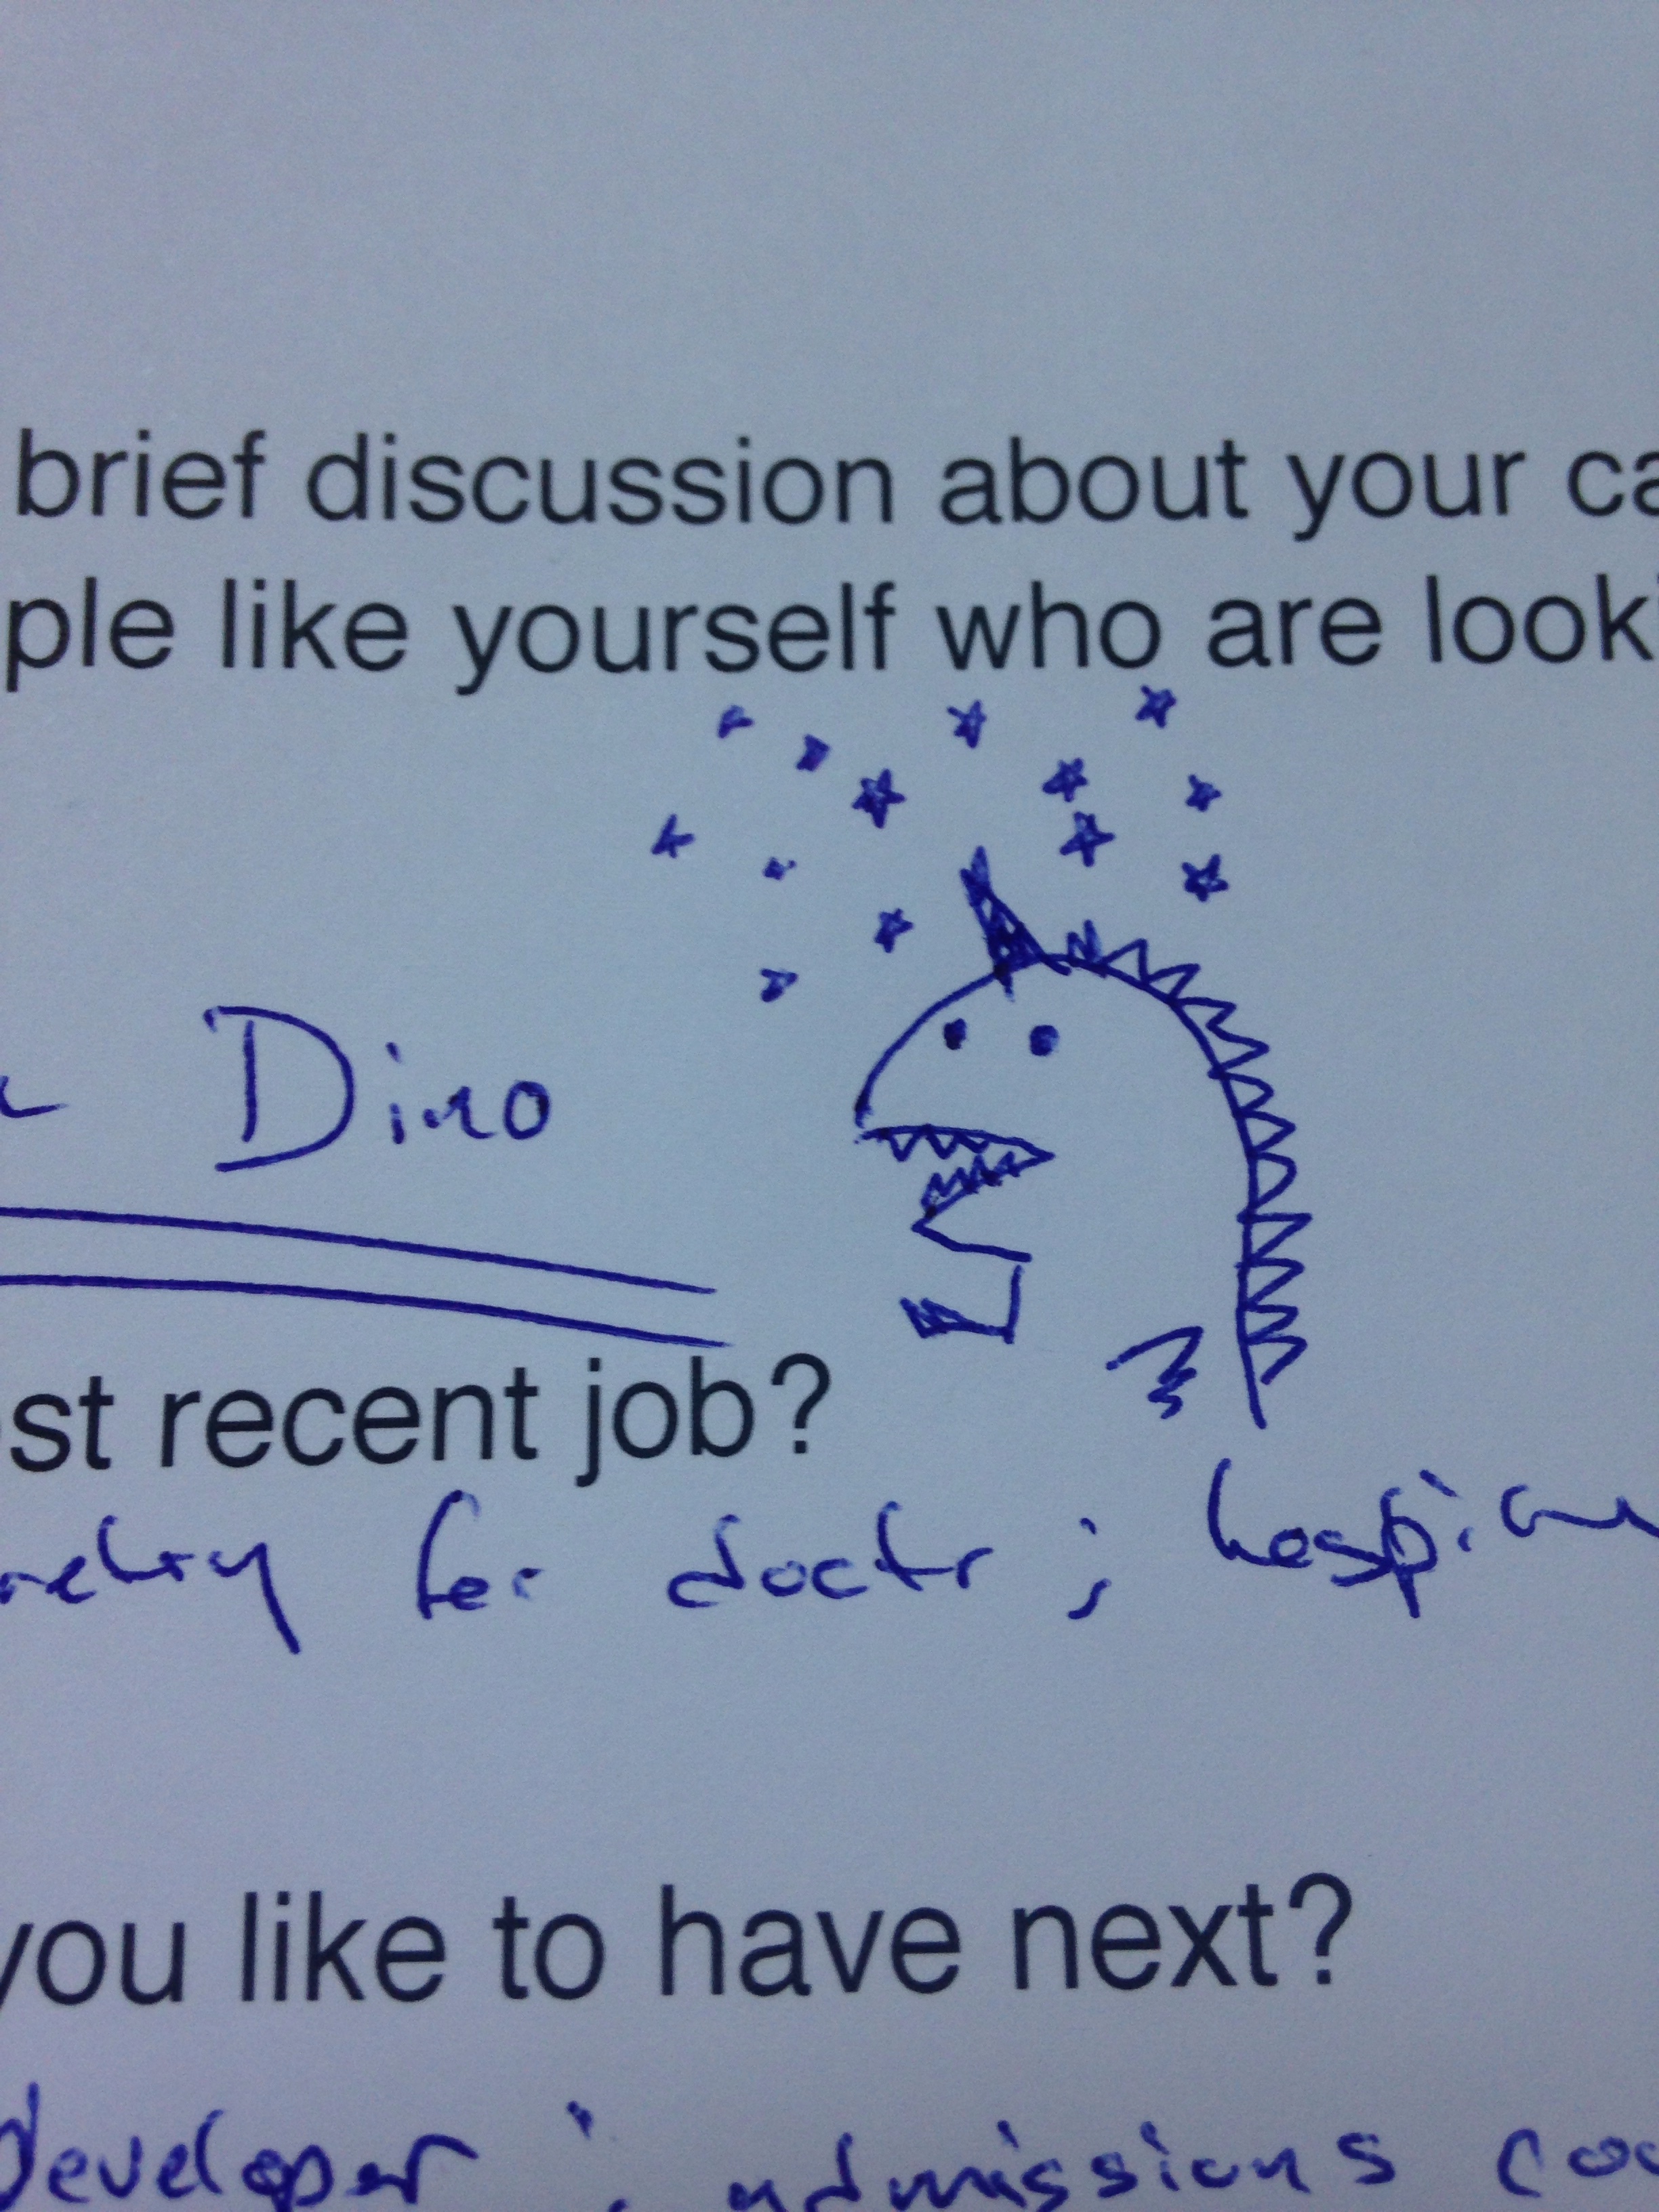 brief discussion about your ca
ple like yourself who are look
Dino
st recent job?
for doctr ; hospi
you like to have next?
developer ; admissions cou